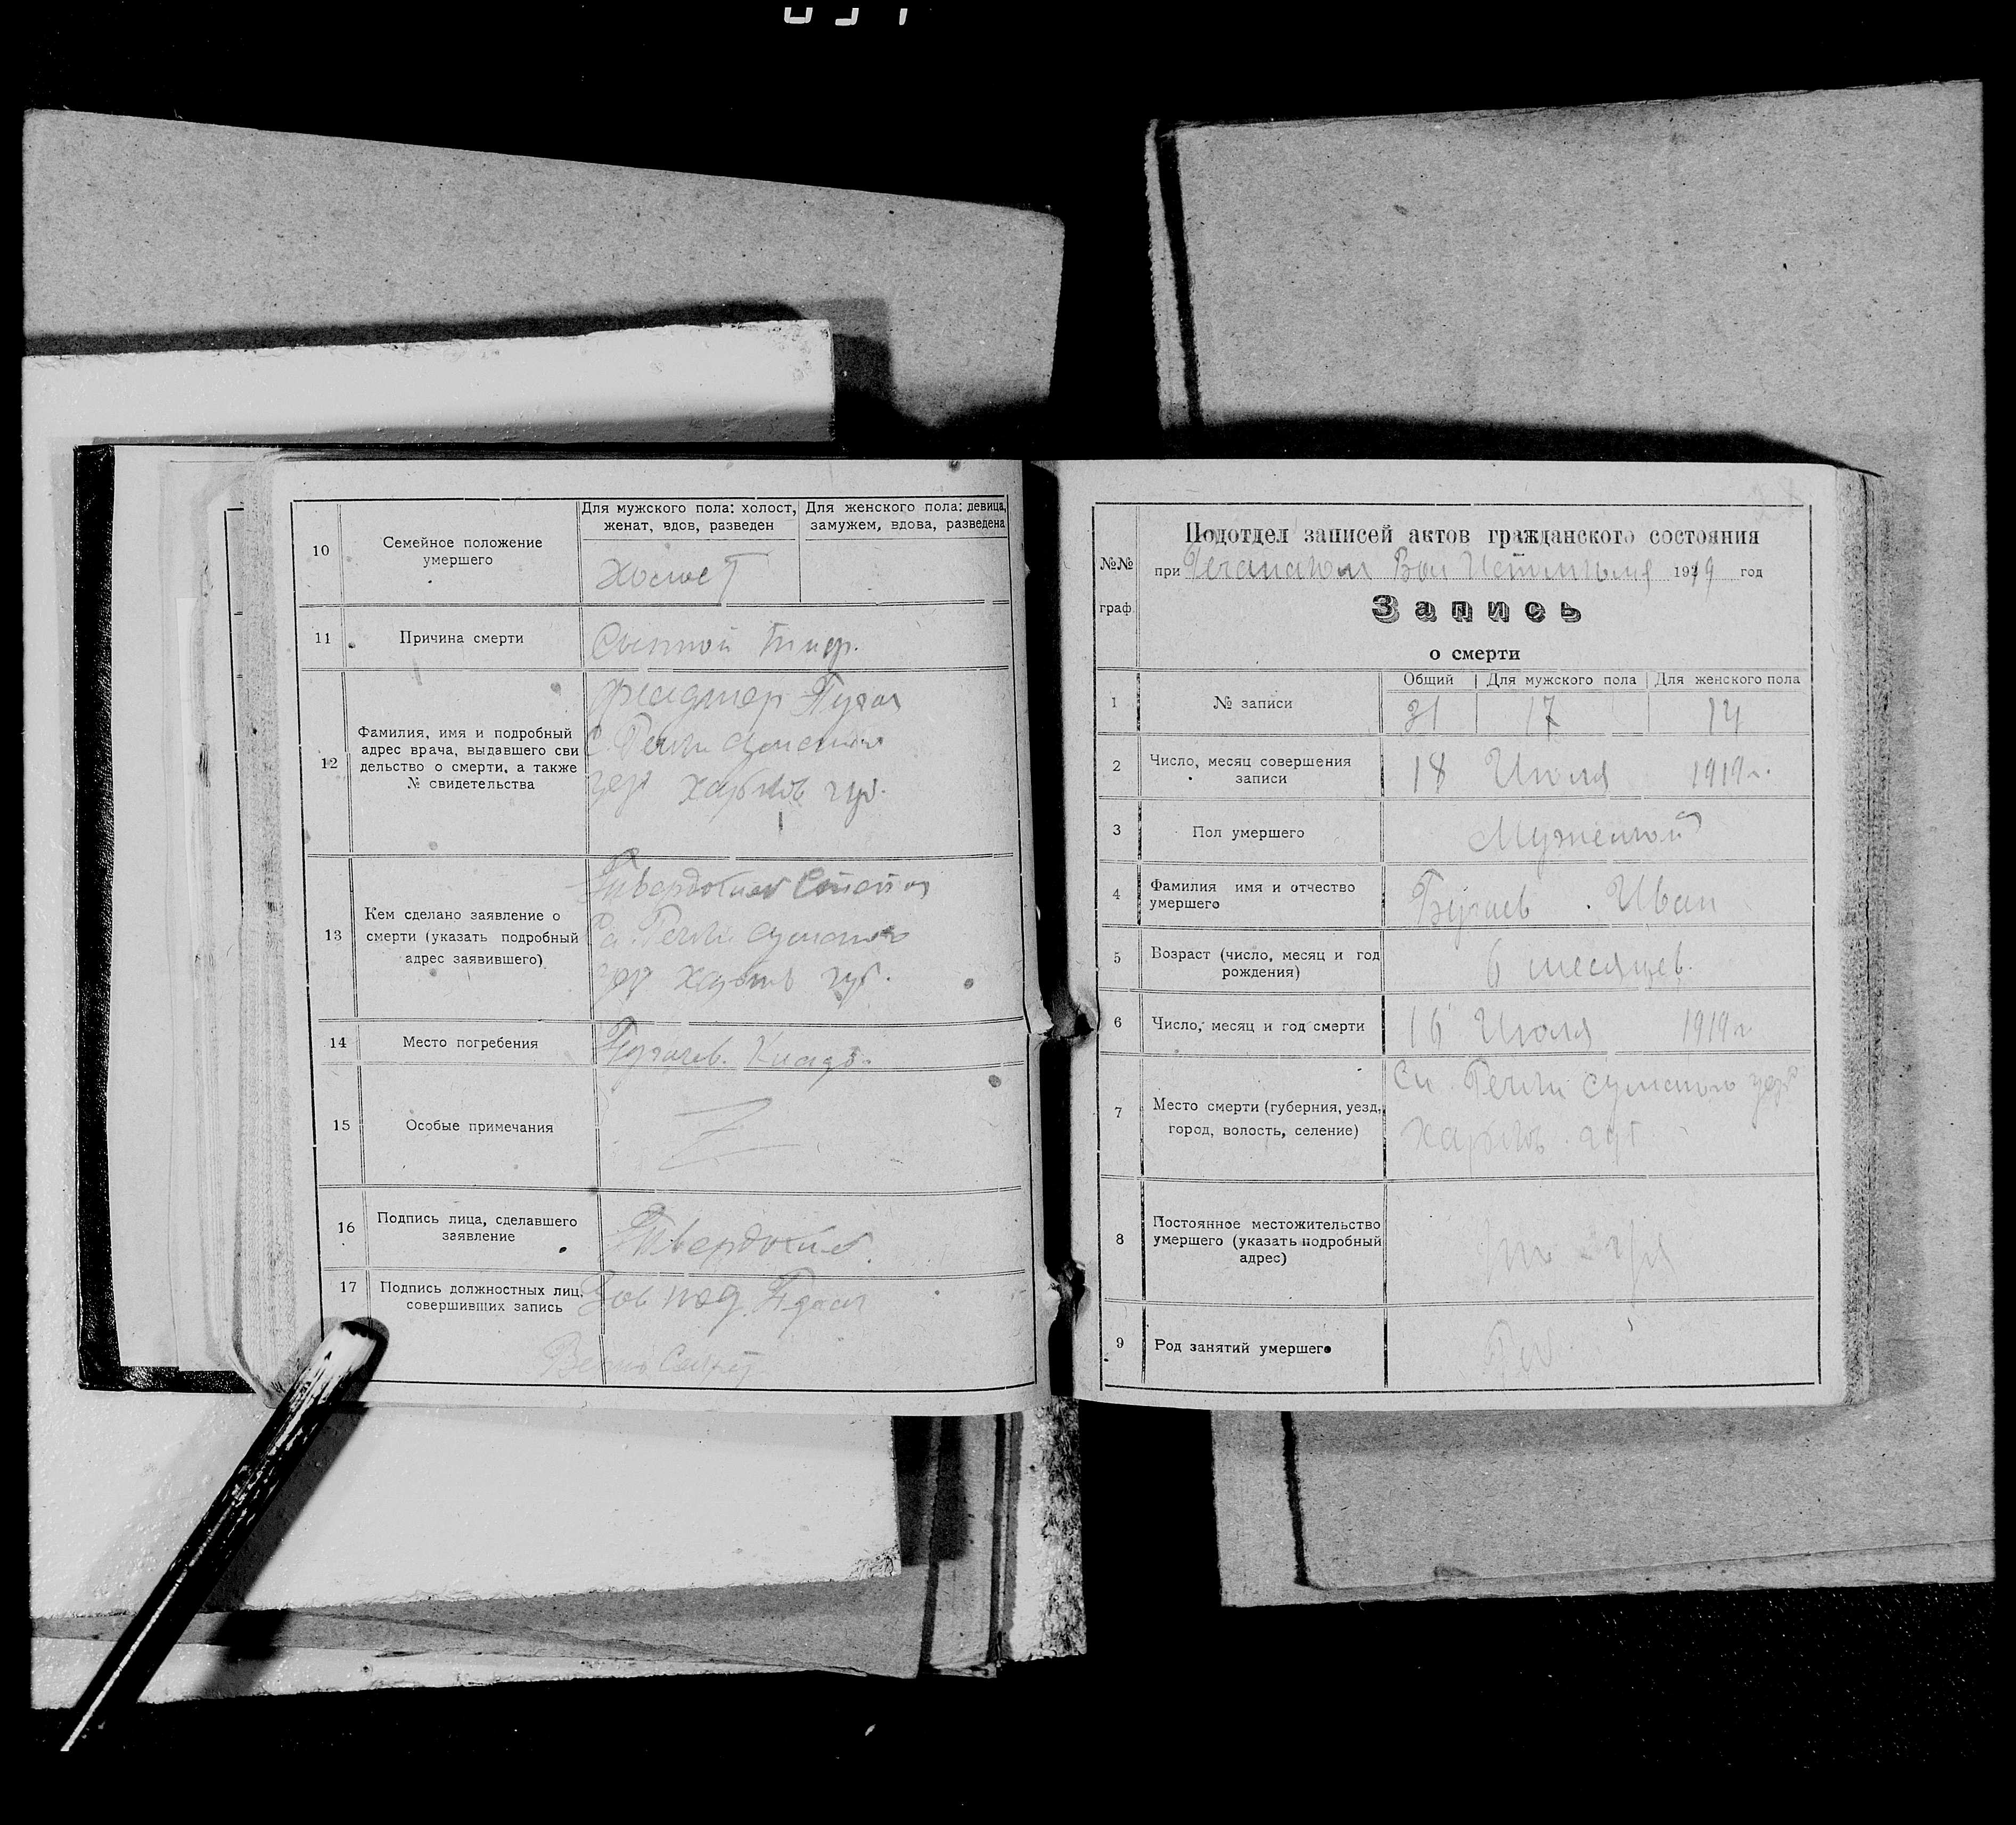 10
Семейное положение
умершего
Для мужского пола: холост,
женат, вдов, разведен
Для женского пола: девица,
замужем, вдова, разведена
Холост
11
Причина смерти
Сыпной тиф.
12
Фамилия, имя и подробный
адрес врача, выдавшего сви
дельство о смерти, а также
№ свидетельства
С. Речки Сумского
уез Харьков губ.
13
Кем сделано заявление о
смерти (указать подробный
адрес заявившего)
Твердохлеб Степан
Речки Сумского
уез Харьков губ.
14
Место погребения
Кладб.
15
Особые примечания
16
Подпись лица, сделавшего
заявление
Твердохлеб.
17
Подпись должностных лиц,
совершивших запись
Зав под.
Секрет
№№
граф
Подотдел записей актов гражданского состояния
при Речанском Вол Исполкоме 1919 год
Запись
о смерти
1
№ записи
Общий
Для мужского пола
Для женского пола
31
17
14
2
Число, месяц совершения
записи
18 Июля 1919 г.
3
Пол умершего
Мужской
4
Фамилия имя и отчество
умершего
Бугаев Иван
5
Возраст (число, месяц и год
рождения)
6 месяцев.
6
Число, месяц и год смерти
16 Июля 1919 г
7
Место смерти (губерния, уезд,
город, волость, селение)
Сл. Речки Сумского уез
Харьков. губ.
8
Постоянное местожительство
умершего (указать подробный
адрес)
9
Род занятий умершего